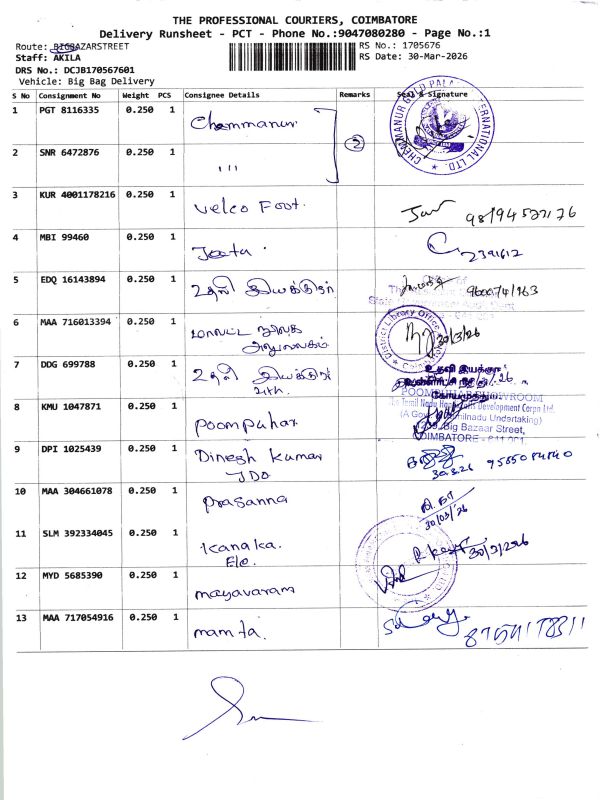 THE PROFESSIONAL COURIERS, COIMBATORE
Delivery Runsheet - PCT - Phone No.:9047080280 - Page No.:1
Route: BIGBAZARSTREET
RS No.: 1705676
Staff: AKILA
RS Date: 30-Mar-2026
DRS No.: DCJB170567601
Vehicle: Big Bag Delivery
S No Consignment No Weight PCS Consignee Details Remarks Seal & Signature
1 PGT 8116335 0.250 1 Chemmanur
CHEMMANUR GOLD PALACE INTERNATIONAL LTD.
2 SNR 6472876 0.250 1 ,,,
2
3 KUR 4001178216 0.250 1 Velco Foot.
4 MBI 99460 0.250 1 Jeeta. 2391612
5 EDQ 16143894 0.250 1 உதவி இயக்குநர்
6 MAA 716013394 0.250 1 மாவட்ட நூலக
அலுவலகம்
District Library Office
30/3/26
7 DDG 699788 0.250 1 உதவி இயக்குநர்
உதவி இயக்குநர்
8 KMU 1047871 0.250 1 Poompuhar
POOMPUHAR SHOWROOM
The Tamil Nadu Handicrafts Development Corpn Ltd.
Big Bazaar Street,
COIMBATORE - 641 001.
9 DPI 1025439 0.250 1 Dinesh Kumar
JDO
30.3.26
10 MAA 304661078 0.250 1 Prasanna
30/03/26
11 SLM 392334045 0.250 1 Kanaka.
E/o.
12 MYD 5685390 0.250 1 mayavaram
13 MAA 717054916 0.250 1 mamta.